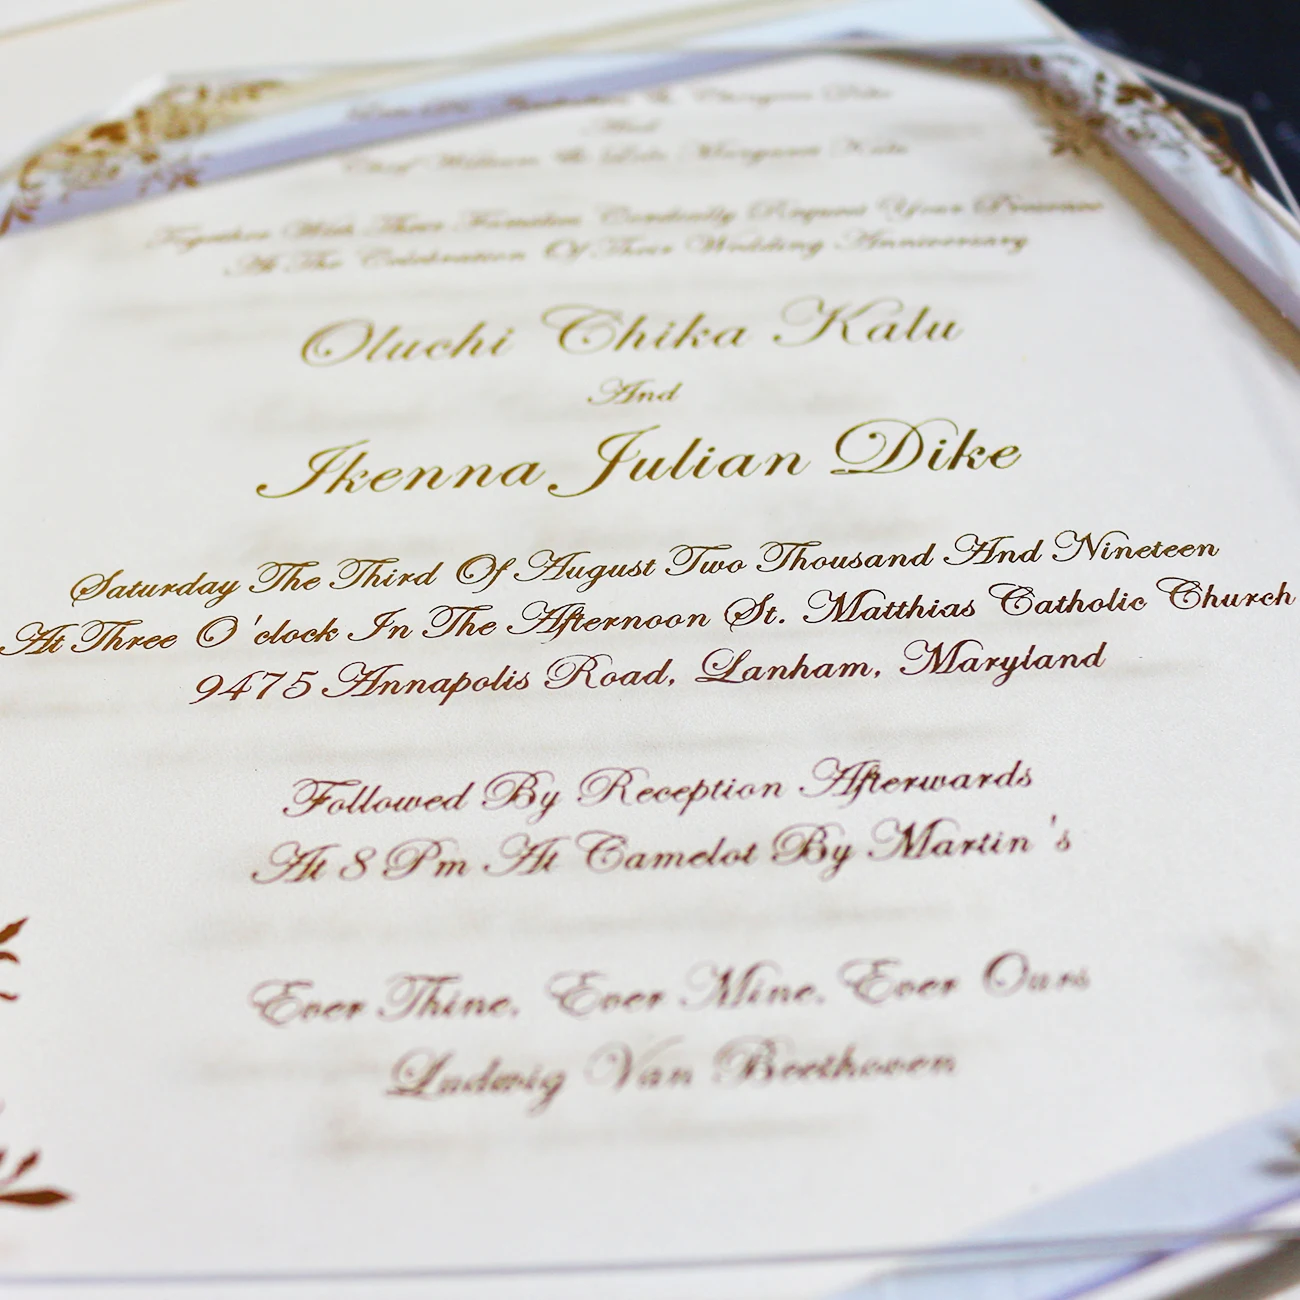 & Chinyere Dike
And
Chief William & Lolo Margaret Kalu
Together With Their Families Cordially Request Your Presence
At The Celebration Of Their Wedding Anniversary
Oluchi Chika Kalu
And
Ikenna Julian Dike
Saturday The Third Of August Two Thousand And Nineteen
At Three O'clock In The Afternoon St. Matthias Catholic Church
9475 Annapolis Road, Lanham, Maryland
Followed By Reception Afterwards
At 8 Pm At Camelot By Martin's
Ever Thine, Ever Mine, Ever Ours
Ludwig Van Beethoven